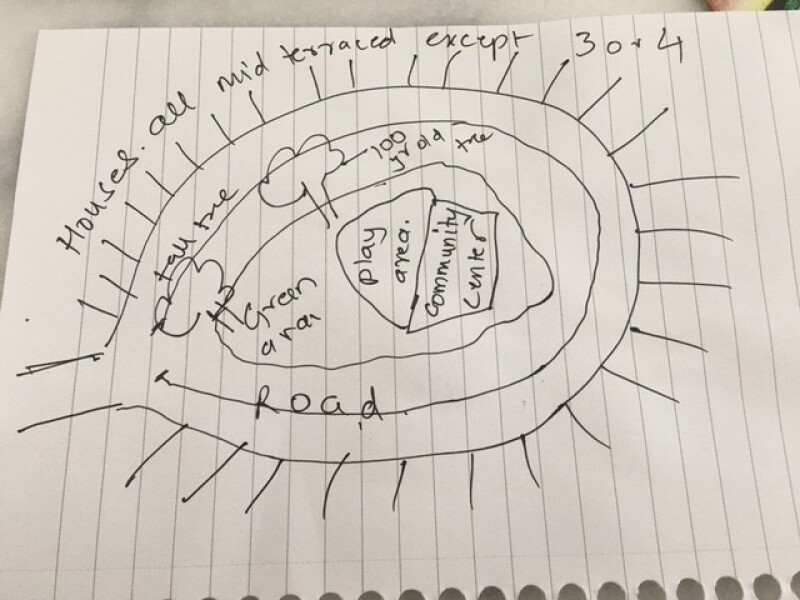 Houses. all mid terraced except 3 or 4
100
tree
tall tree
Play
area.
community
center
Green
area
Road